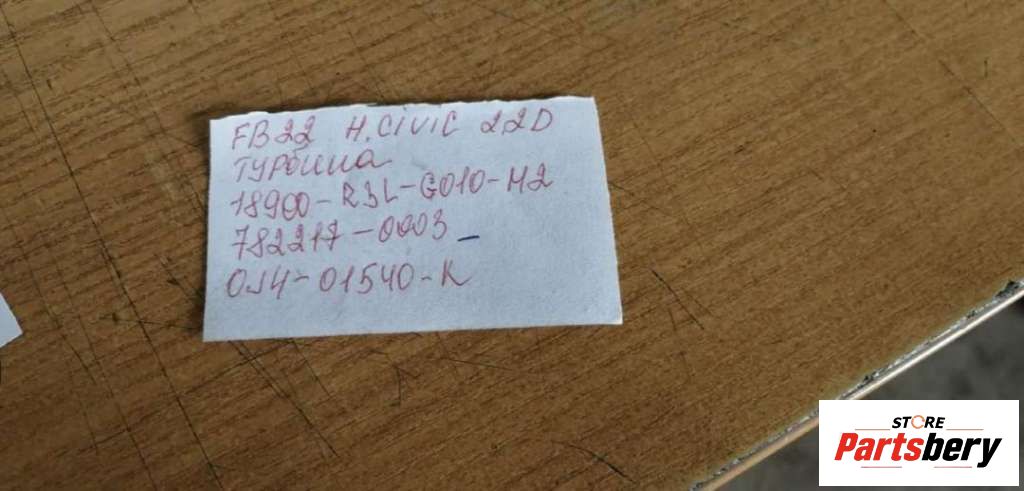 FB22 H.CIVIC 2,2D
ТУРбина
18900-R3L-G010-M2
782217-0003
0J4-01540-K
STORE
Partsbery